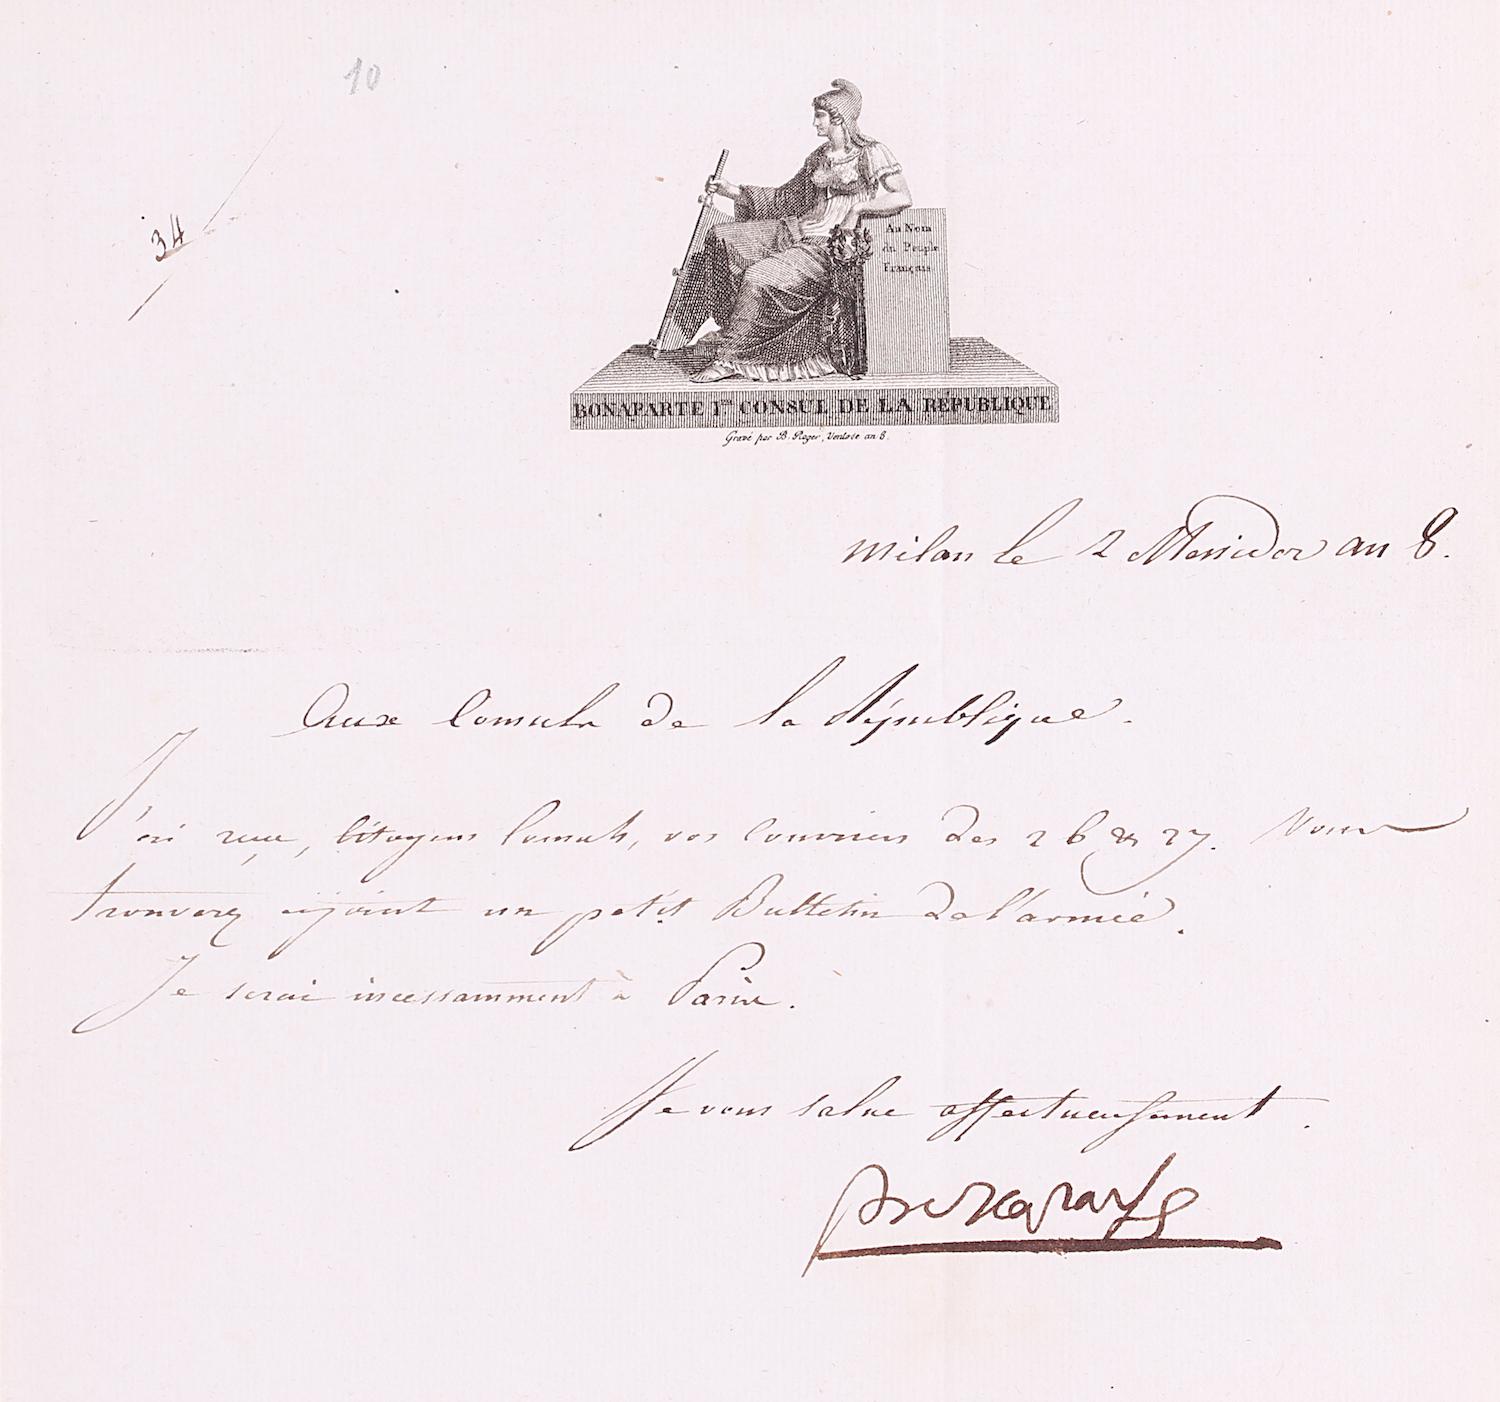 10
34
Au Nom
du Peuple
Français.
BONAPARTE 1er CONSUL DE LA RÉPUBLIQUE
Gravé par B. Roger, Ventose an 8.
Milan le 2 Messidor an 8.
Aux Consuls de la République.
J'ai reçu, Citoyens Consuls, vos couriers des 26 & 27. Vous
trouverez cijoint un petit Bulletin de l'armée.
Je serai incessamment à Paris.
Je vous salue affectueusement.
Bonaparte